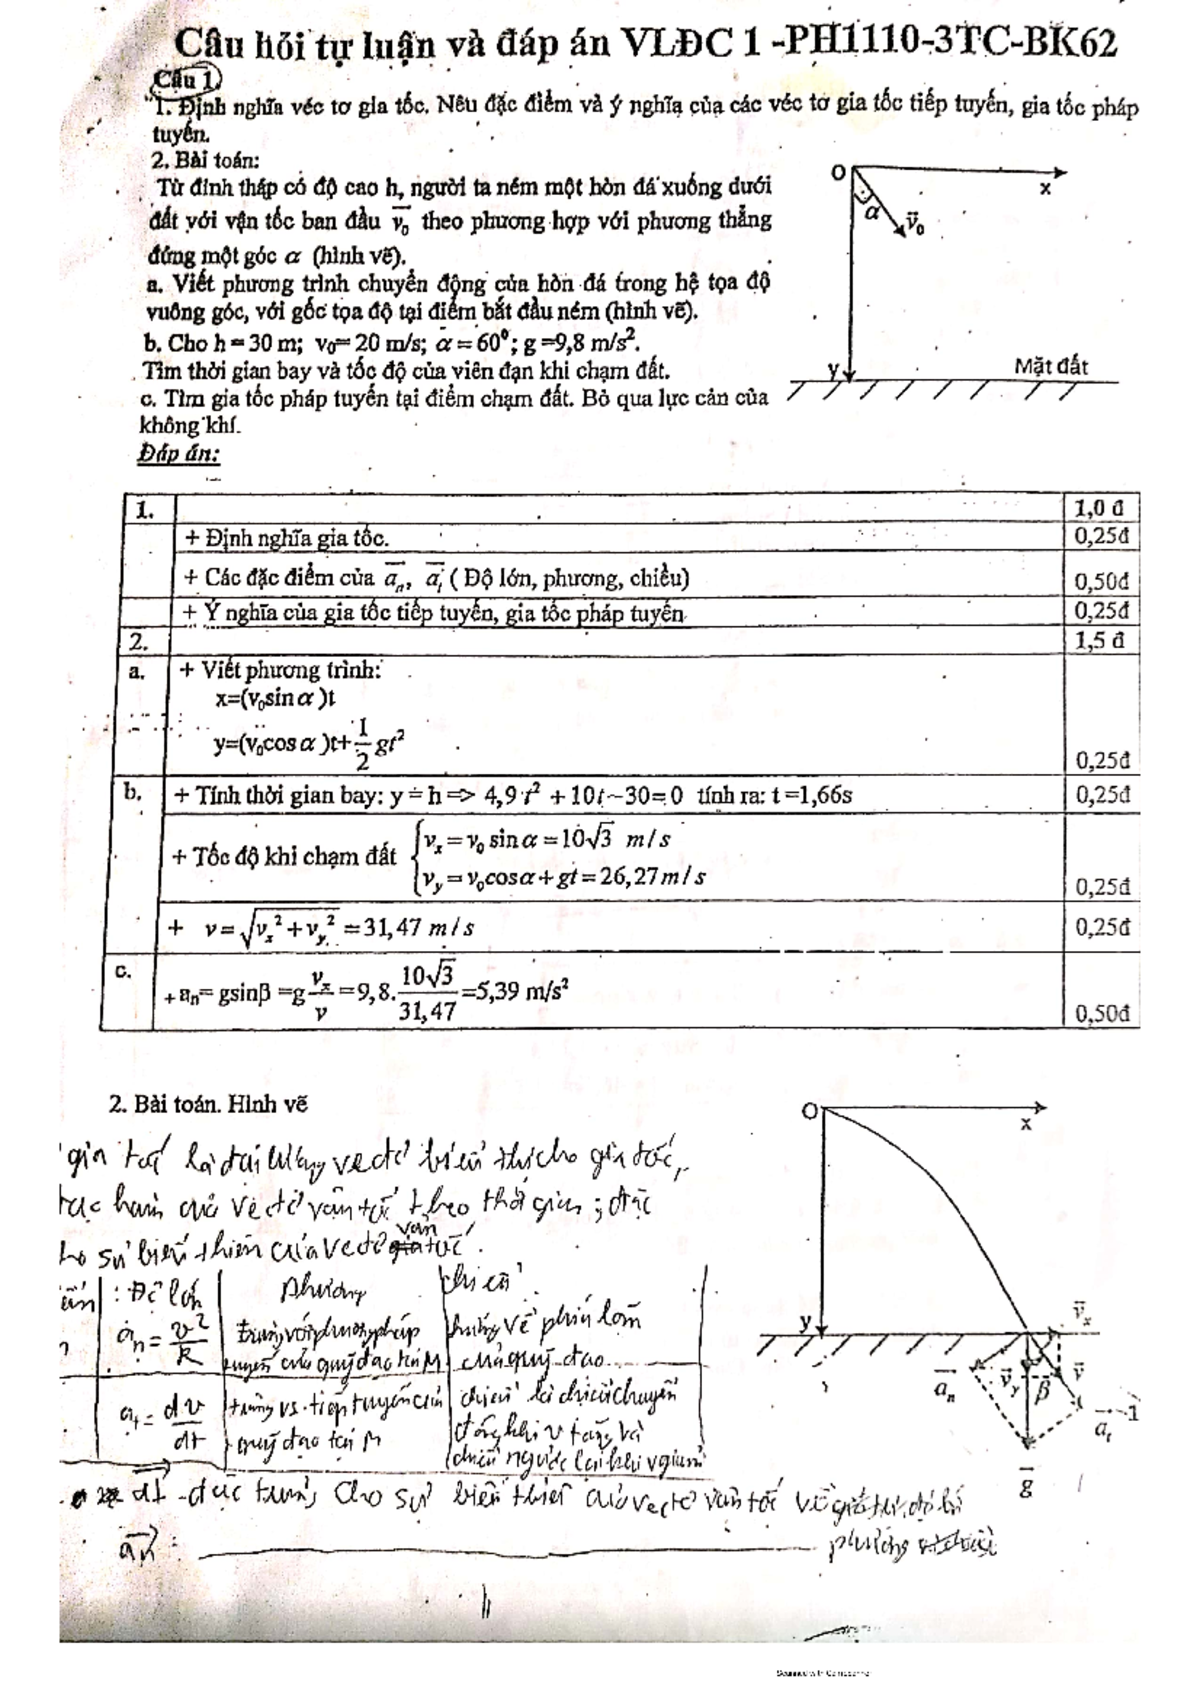 Câu hỏi tự luận và đáp án VLĐC 1 -PH1110-3TC-BK62
Câu 1
1. Định nghĩa véc tơ gia tốc. Nêu đặc điểm và ý nghĩa của các véc tơ gia tốc tiếp tuyến, gia tốc pháp
tuyến.
2. Bài toán:
Từ đỉnh tháp có độ cao h, người ta ném một hòn đá xuống dưới
đất với vận tốc ban đầu v⃗₀ theo phương hợp với phương thẳng
đứng một góc α (hình vẽ).
a. Viết phương trình chuyển động của hòn đá trong hệ tọa độ
vuông góc, với gốc tọa độ tại điểm bắt đầu ném (hình vẽ).
b. Cho h = 30 m; v₀= 20 m/s; α = 60⁰; g =9,8 m/s².
Tìm thời gian bay và tốc độ của viên đạn khi chạm đất.
c. Tìm gia tốc pháp tuyến tại điểm chạm đất. Bỏ qua lực cản của
không khí.
O
x
α
v⃗₀
y
Mặt đất
Đáp án:
1. 1,0 đ
+ Định nghĩa gia tốc. 0,25đ
+ Các đặc điểm của a⃗ₙ, a⃗ₜ ( Độ lớn, phương, chiều) 0,50đ
+ Ý nghĩa của gia tốc tiếp tuyến, gia tốc pháp tuyến 0,25đ
2. 1,5 đ
a. + Viết phương trình:
x=(v₀sin α )t
y=(v₀cos α )t+ 1/2 gt² 0,25đ
b. + Tính thời gian bay: y = h => 4,9 t² + 10t – 30 = 0 tính ra: t =1,66s 0,25đ
+ Tốc độ khi chạm đất { vₓ = v₀ sin α = 10√3 m/s
v_y = v₀cosα + gt = 26,27 m/s 0,25đ
+ v = √(vₓ² + v_y²) = 31,47 m/s 0,25đ
c. + aₙ= gsinβ =g vₓ/v =9,8. 10√3/31,47 =5,39 m/s² 0,50đ
2. Bài toán. Hình vẽ
O
x
y
v⃗ₓ
a⃗ₙ
v⃗_y
β
v⃗
a⃗ₜ
g⃗
gia tốc là đại lượng vectơ biểu thị cho gia tốc,
hàm của vectơ vận tốc theo thời gian ; đặc
ho sự biến thiên của vectơ vận tốc.
: Độ lớn Phương chiều
aₙ = v²/R trùng với phương pháp hướng về phía lõm
tuyến của quỹ đạo tại M của quỹ đạo
aₜ = dv/dt trùng vs tiếp tuyến của chiều là chiều chuyển
quỹ đạo tại M động khi v tăng và
chiều ngược lại khi v giảm
a⃗t đặc trưng cho sự biến thiên của vectơ vận tốc về
a⃗n : phương
Scanned with CamScanner